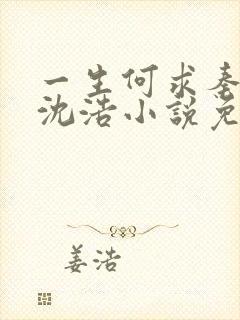 一生何求秦
沈浩小説免
姜浩